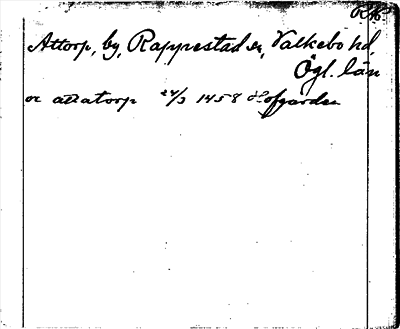 Attorp, by, Rappestad sn, Valkebo hd,
Ögl. län
or attatorp 24/3 1458 Hofgarden